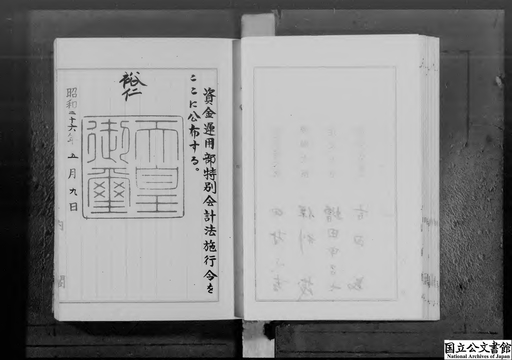 資金運用部特別会計法施行令を
ここに公布する。
裕仁
天皇
御璽
昭和二十六年五月九日
内閣
国立公文書館
National Archives of Japan